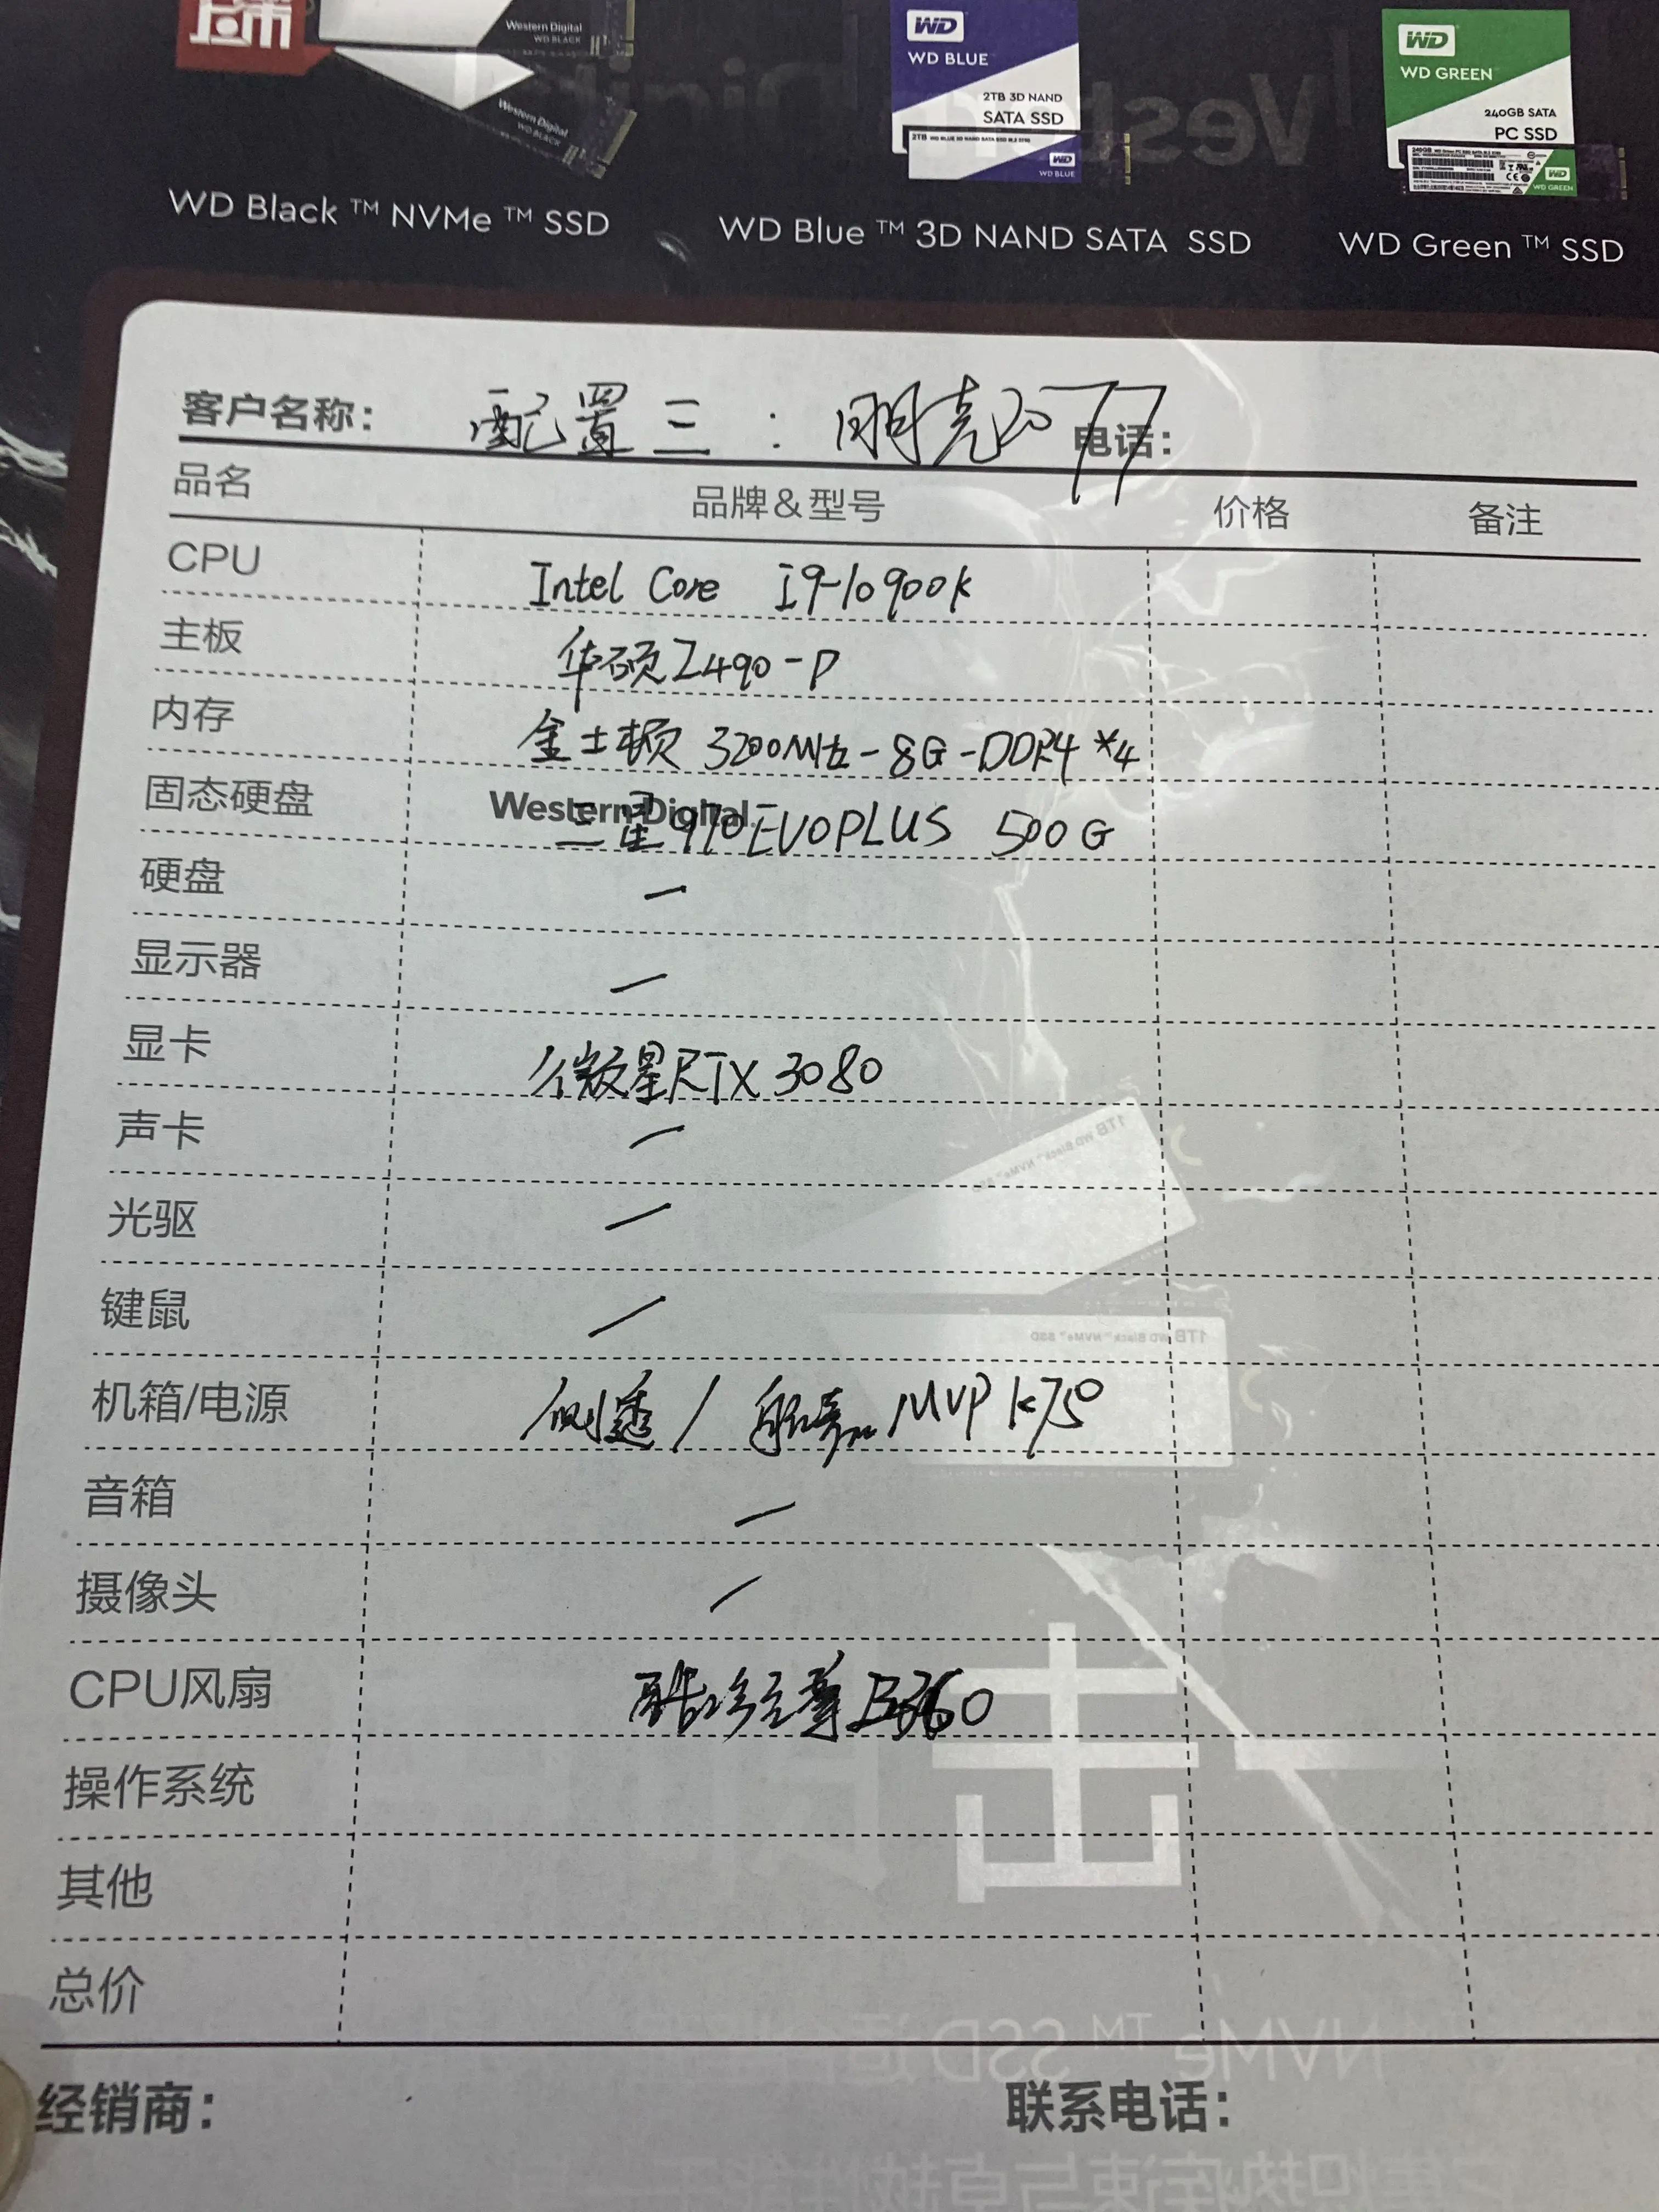 Western Digital
WD BLACK
Western Digital
WD BLACK
WD
WD BLUE
2TB 3D NAND
SATA SSD
WD
WD BLUE
WD
WD GREEN
240GB SATA
PC SSD
WD
WD GREEN
WD Black ™ NVMe ™ SSD
WD Blue ™ 3D NAND SATA SSD
WD Green ™ SSD
客户名称: 配置三:朋克2077 电话:
品名 品牌&型号 价格 备注
CPU Intel Core i9-10900k
主板 华硕Z490-P
内存 金士顿 3200MHz-8G-DDR4*4
固态硬盘 Western Digital 三星970EVOPLUS 500G
硬盘 —
显示器 —
显卡 微星RTX 3080
声卡 —
光驱 —
键鼠 —
机箱/电源 侧透 / 航嘉 MVP K750
音箱 —
摄像头 —
CPU风扇 酷冷至尊 360
操作系统
其他
总价
经销商: 联系电话: